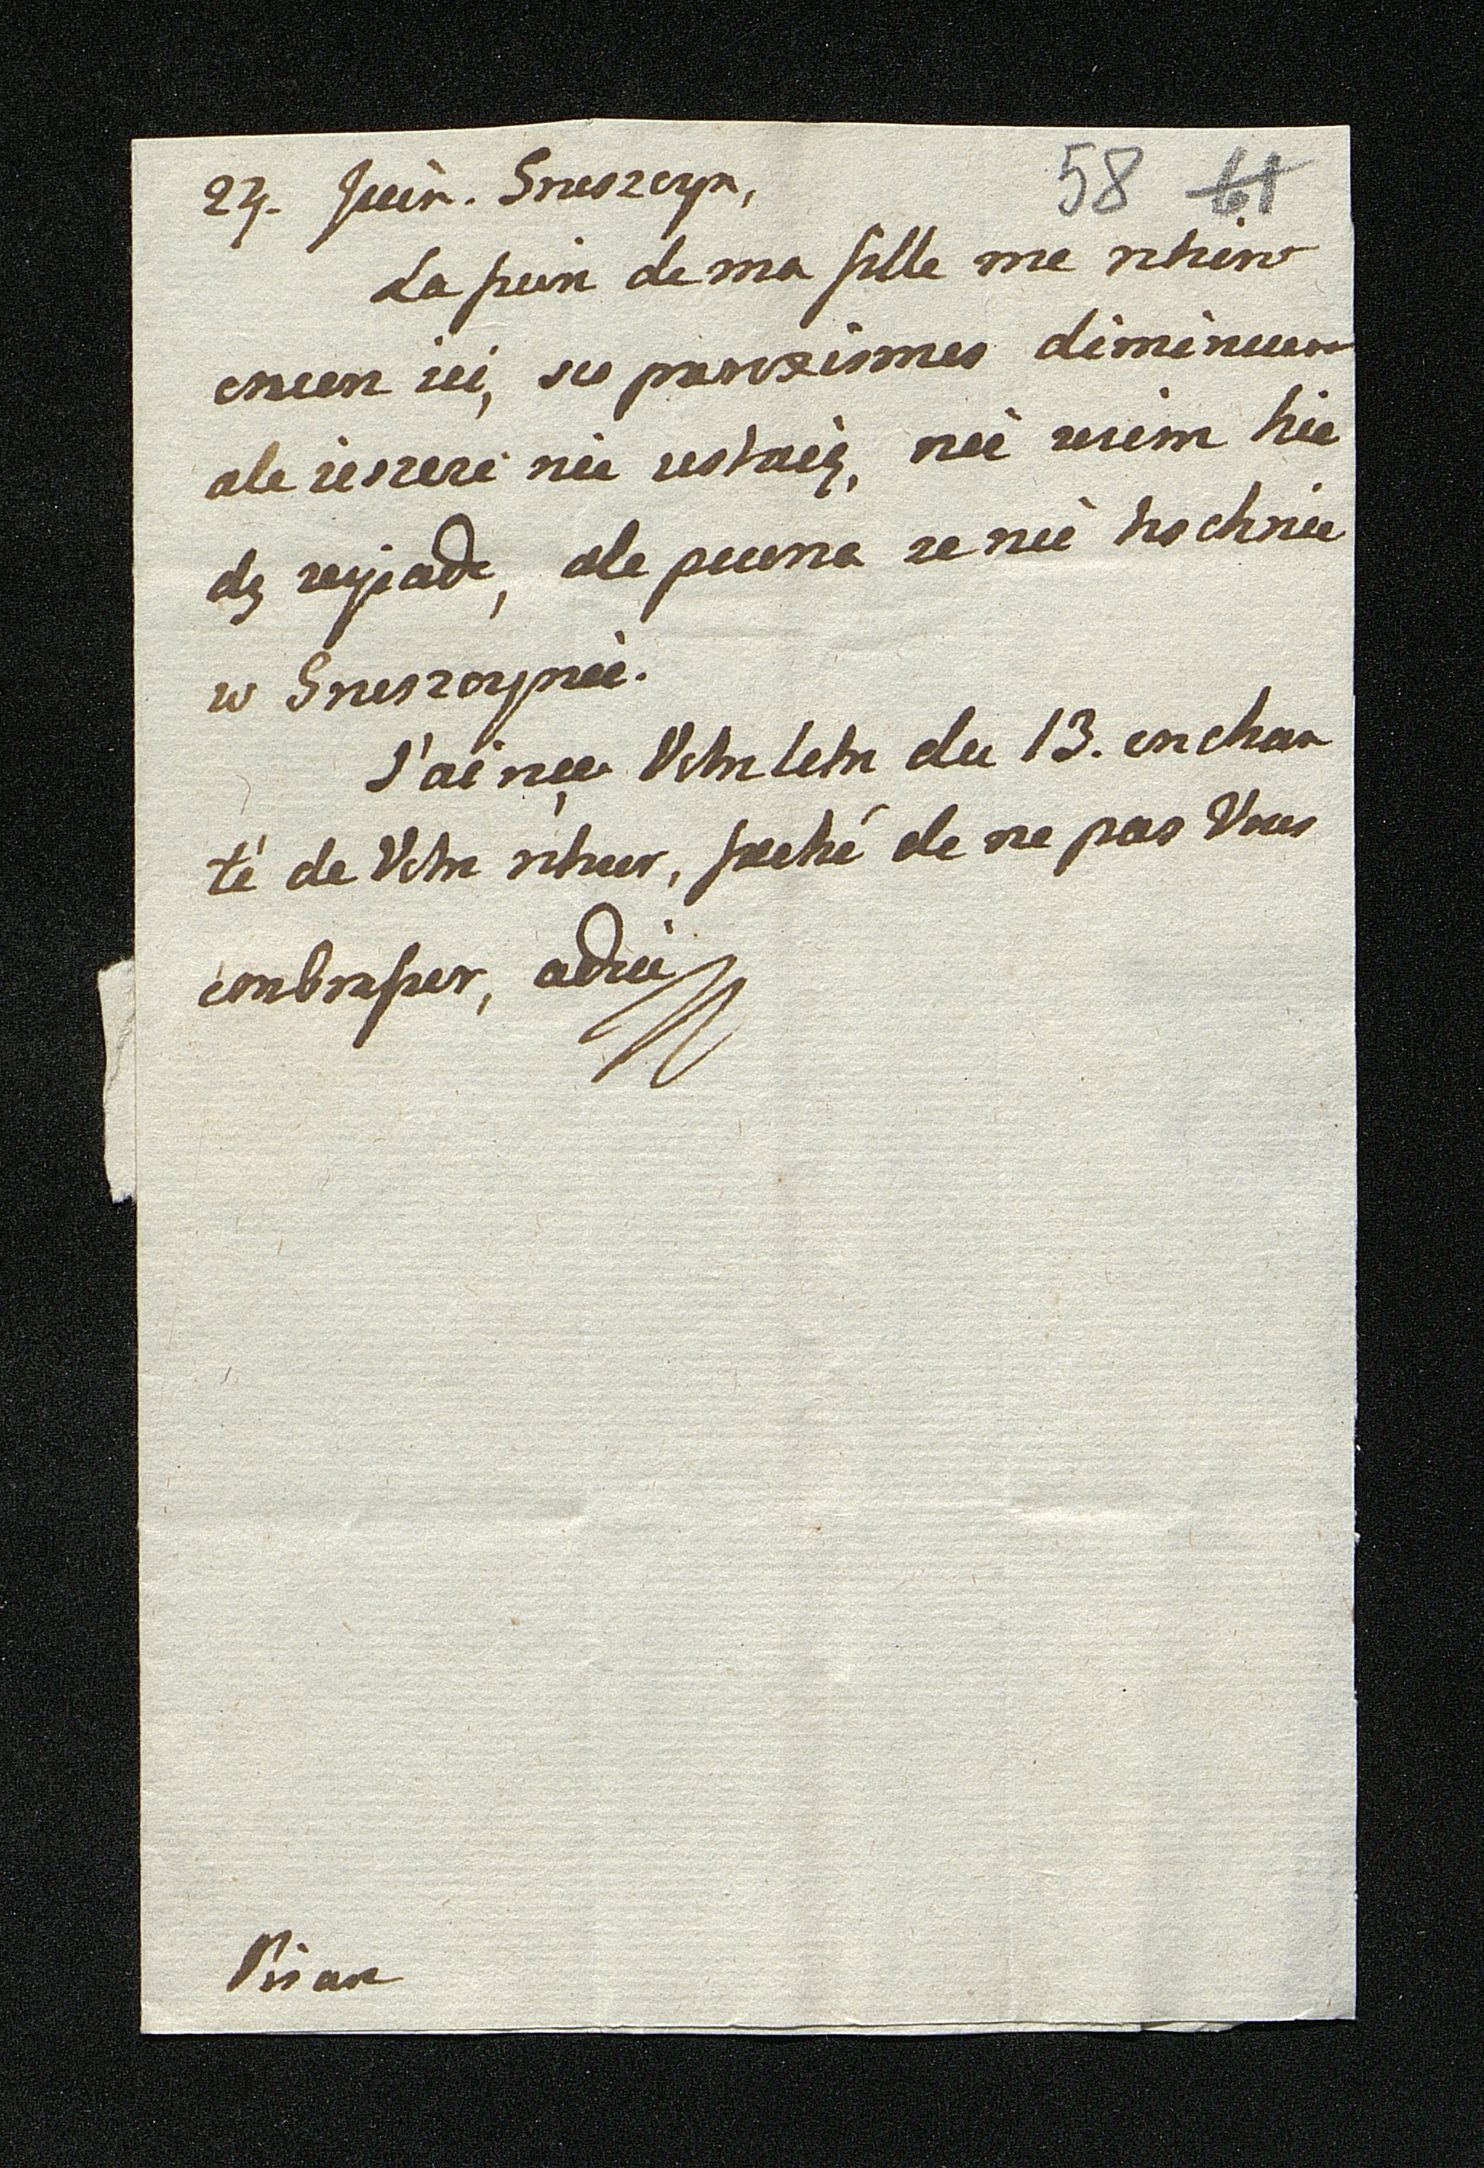 27. Juin. Sneszczyn,
58 61
La fievr de ma fille me retient
encore ici, ses paroxismes diminuent
ale ieszcze nie ustaią, nie wiem kie
dy wyiade, ale pewna ze nie kochnie
w Sneszczynie.
J'ai reçu Votre letre du 13. enchan
té de Votre retour, faché de ne pas Vous
embrasser, adieu
Pisan